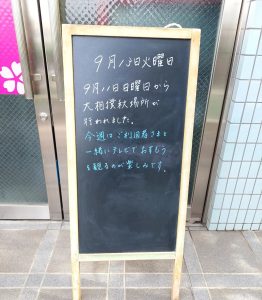 9月13日火曜日
9月11日日曜日から
大相撲秋場所が
行われました。
今週は、ご利用者さまと
一緒にテレビで おすもう
を観るのが楽しみです。